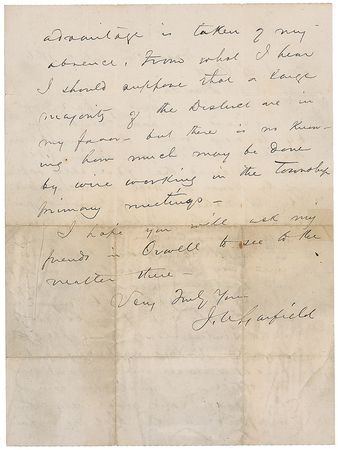 advantage is taken of my
absence. From what I hear
I should suppose that a large
majority of the District are in
my favor - but there is no know-
ing how much may be done
by wire working in the Township
primary meetings -
I hope you will ask my
friends in Orwell to see to the
matter there -
Very Truly Yours
J. A. Garfield